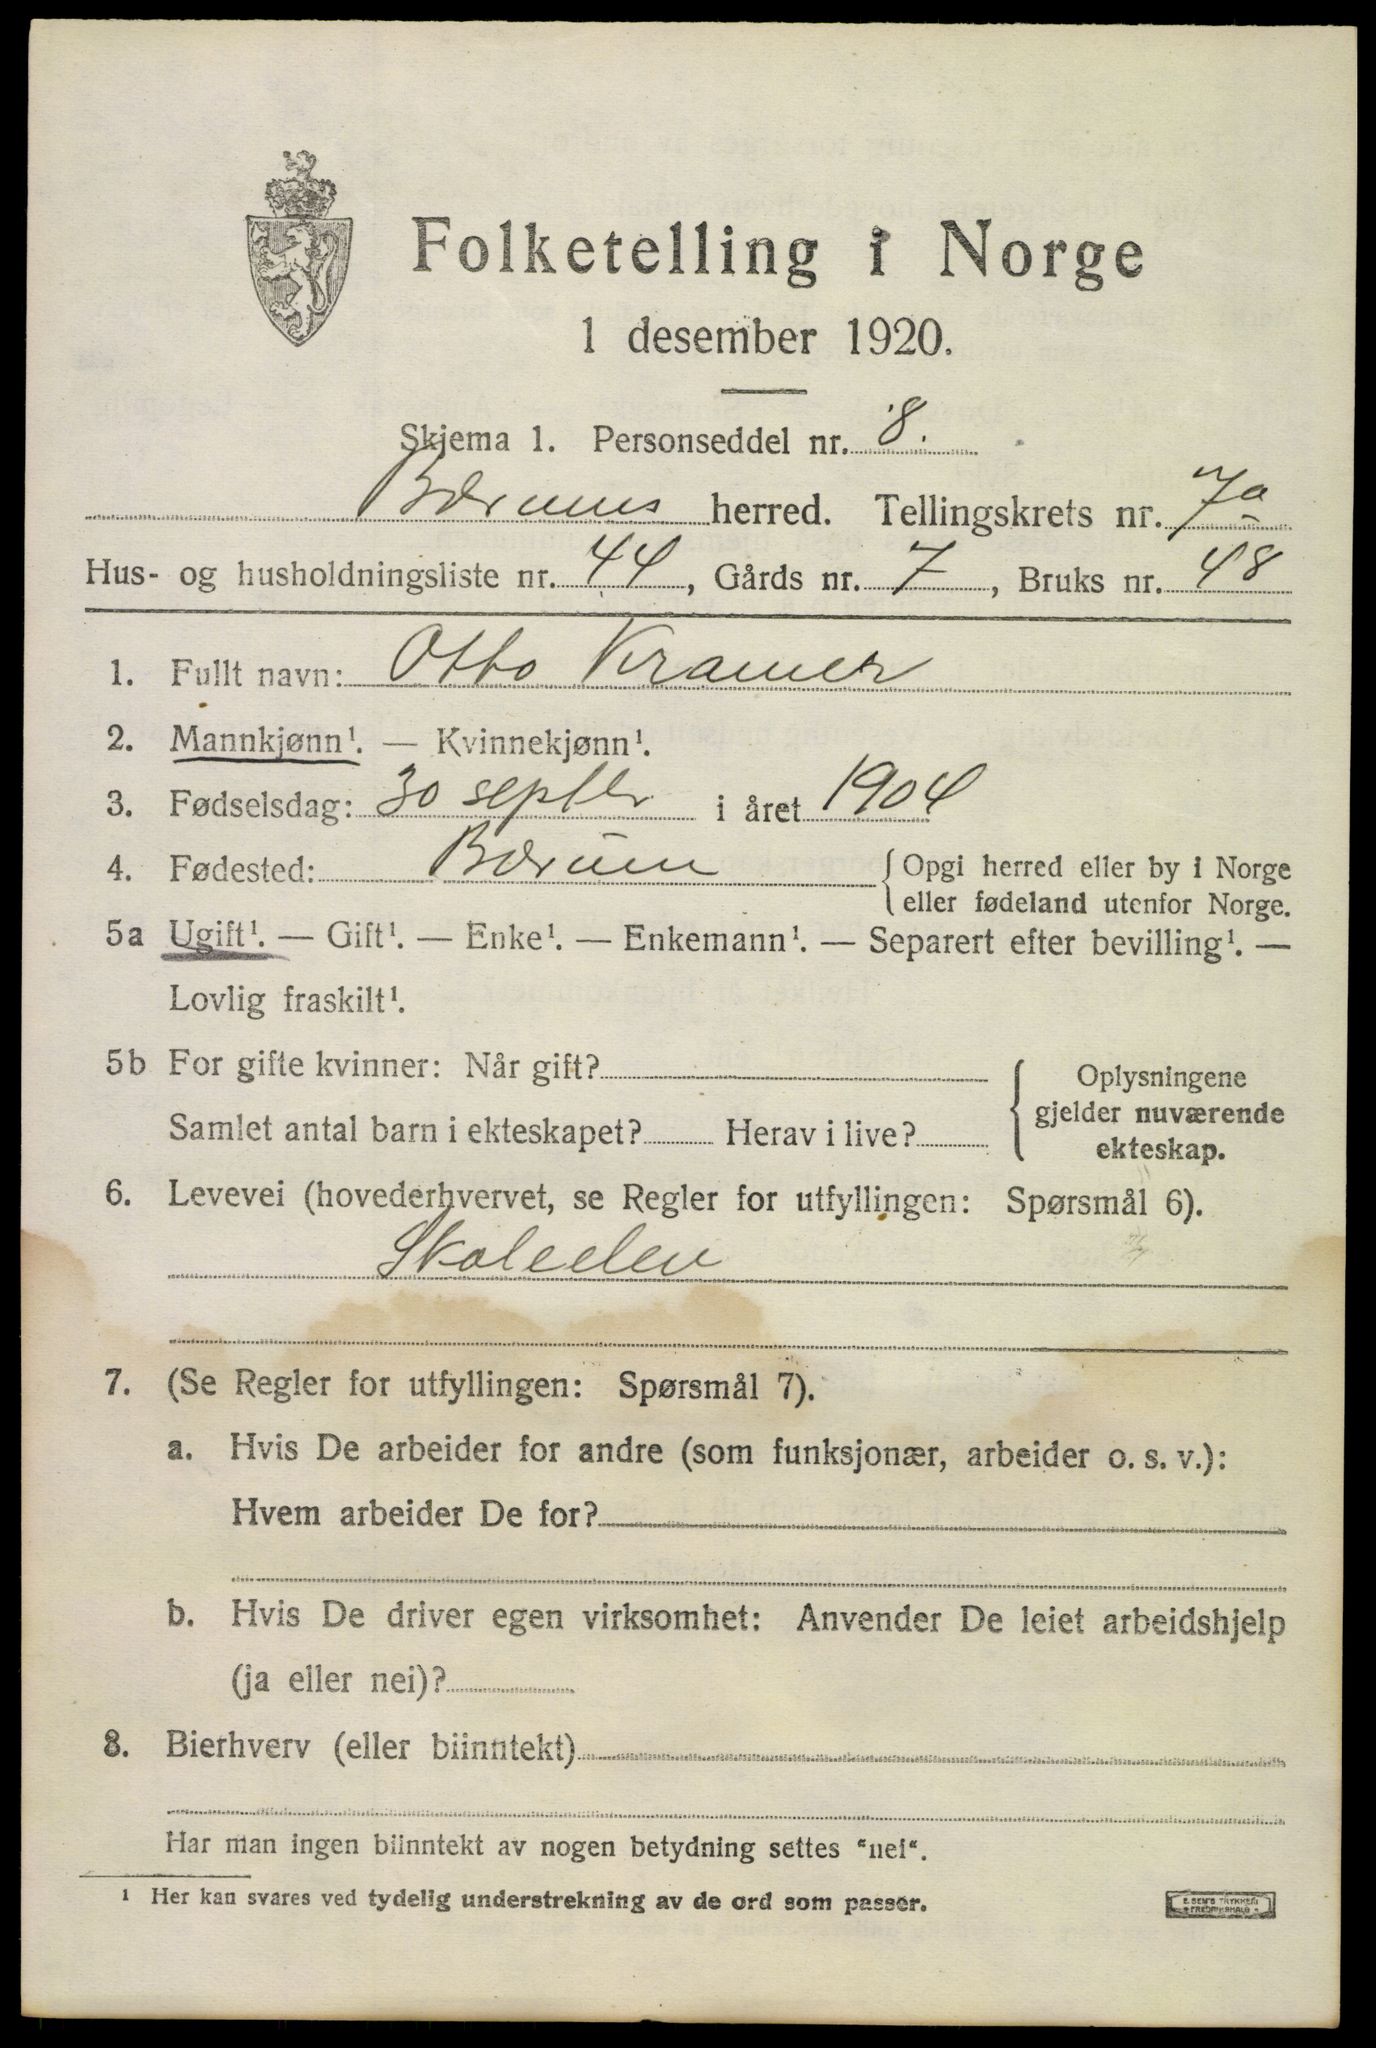 Folketelling i Norge
1 desember 1920.
Skjema 1. Personseddel nr. 8.
Bærums herred. Tellingskrets nr. 7a
Hus- og husholdningsliste nr. 44, Gårds nr. 7, Bruks nr. 48
1. Fullt navn: Otto Kramer
2. Mannkjønn¹. — Kvinnekjønn¹.
3. Fødselsdag: 30 septbr i året 1904
4. Fødested: Bærum { Opgi herred eller by i Norge
eller fødeland utenfor Norge.
5a Ugift¹. — Gift¹. — Enke¹. — Enkemann¹. — Separert efter bevilling¹. —
Lovlig fraskilt¹.
5b For gifte kvinner: Når gift?
Samlet antal barn i ekteskapet? Herav i live?
{ Oplysningene
gjelder nuværende
ekteskap.
6. Levevei (hovederhvervet, se Regler for utfyllingen: Spørsmål 6).
Skoleelev
7. (Se Regler for utfyllingen: Spørsmål 7).
a. Hvis De arbeider for andre (som funksjonær, arbeider o. s. v.):
Hvem arbeider De for?
b. Hvis De driver egen virksomhet: Anvender De leiet arbeidshjelp
(ja eller nei)?
8. Bierhverv (eller biinntekt)
Har man ingen biinntekt av nogen betydning settes “nei“.
¹ Her kan svares ved tydelig understrekning av de ord som passer.
E. SEM'S TRYKKERI
FREDRIKSHALD